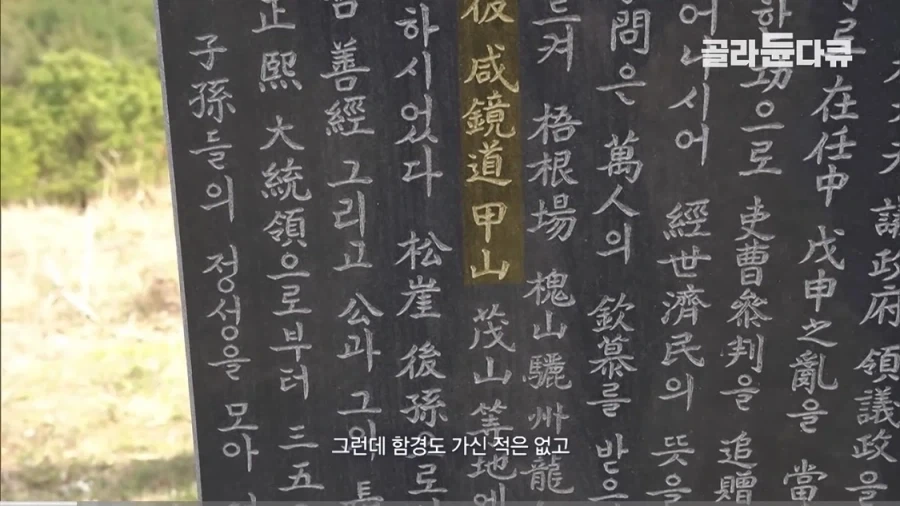 골라듄다큐
議政府 領議政을
在任中 戊申之亂을 當
功으로 吏曹參判을 追贈
어나시어 經世濟民의 뜻을
問은 萬人의 欽慕를 받으
르켜 梧根場 槐山 驪州 龍
後 咸鏡道 甲山 茂山 等地에
하시었다 松崖 後孫으로
善經 그리고 公과 그의
正熙 大統領으로부터 三五
子孫들의 정성을 모아
그런데 함경도 가신 적은 없고